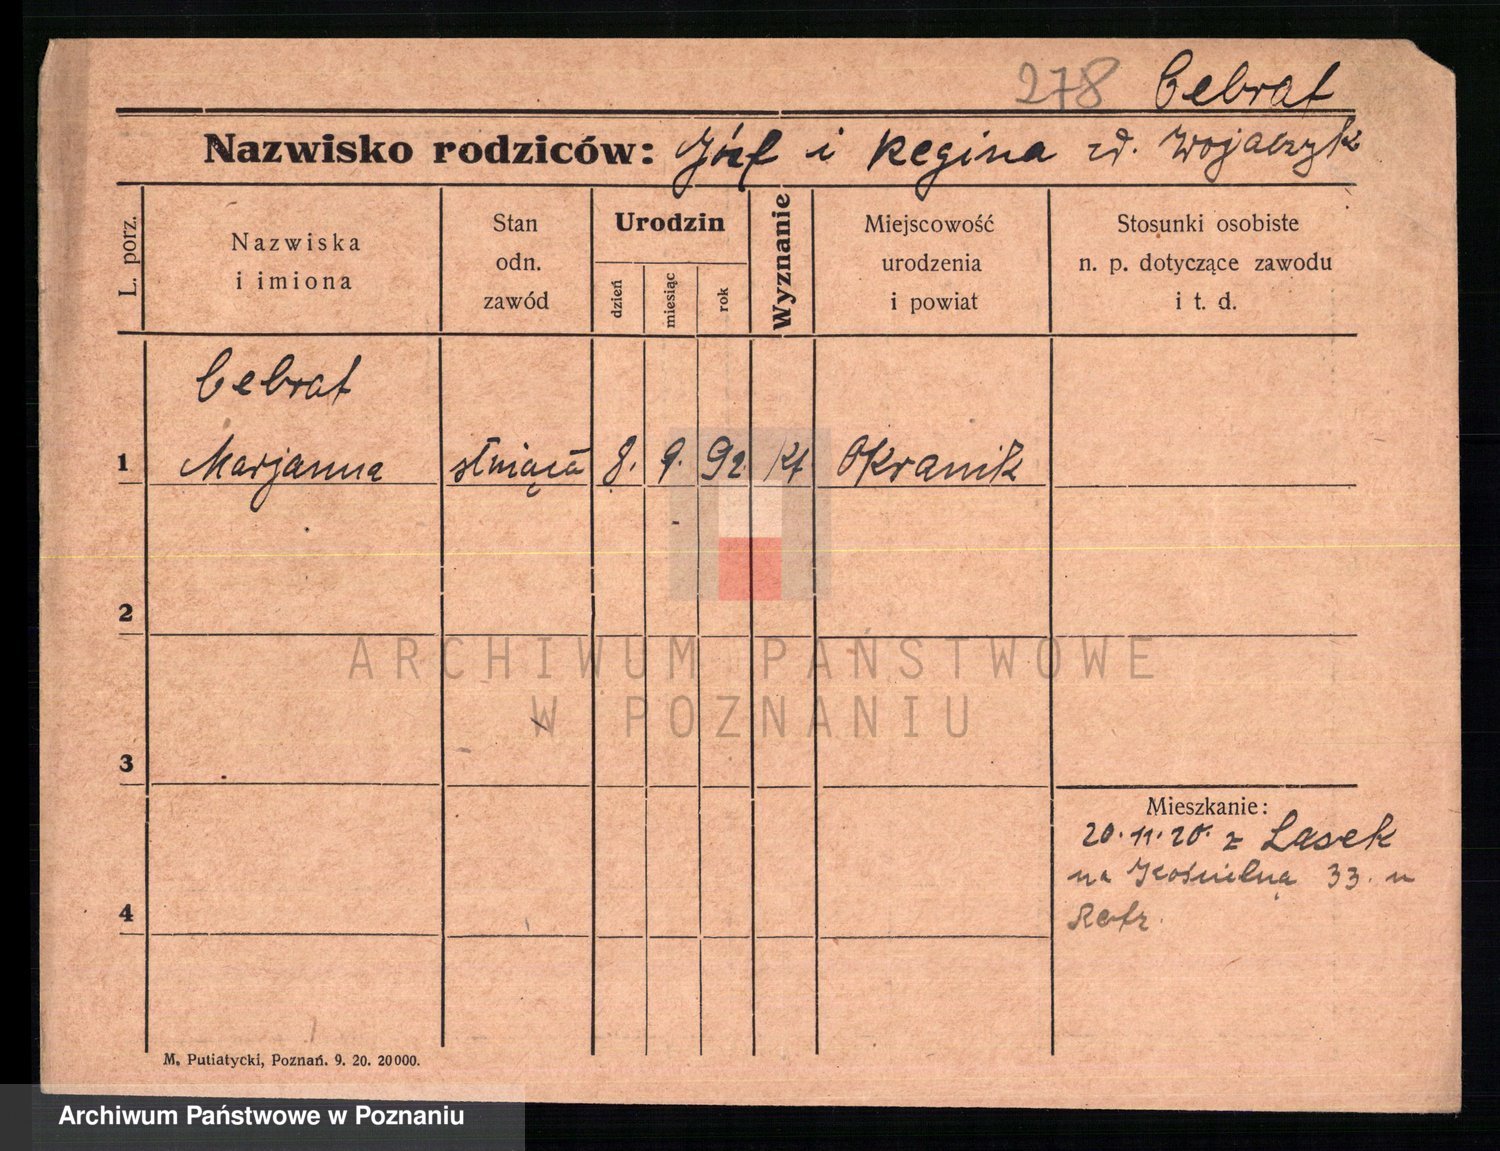 278 Cebrat
Nazwisko rodziców: Józef i Regina zd. Wojaczyk
L. porz.
Nazwiska
i imiona
Stan
odn.
zawód
Urodzin
dzień
miesiąc
rok
Wyznanie
Miejscowość
urodzenia
i powiat
Stosunki osobiste
n. p. dotyczące zawodu
i t. d.
Cebrat
1 Marjanna służąca 8. 9. 92. kt Okranik
2
3
4
Mieszkanie:
20.11.20. z Lasek
na Kościelną 33. u
M. Putiatycki, Poznań. 9. 20. 20000.
ARCHIWUM PAŃSTWOWE
W POZNANIU
Archiwum Państwowe w Poznaniu